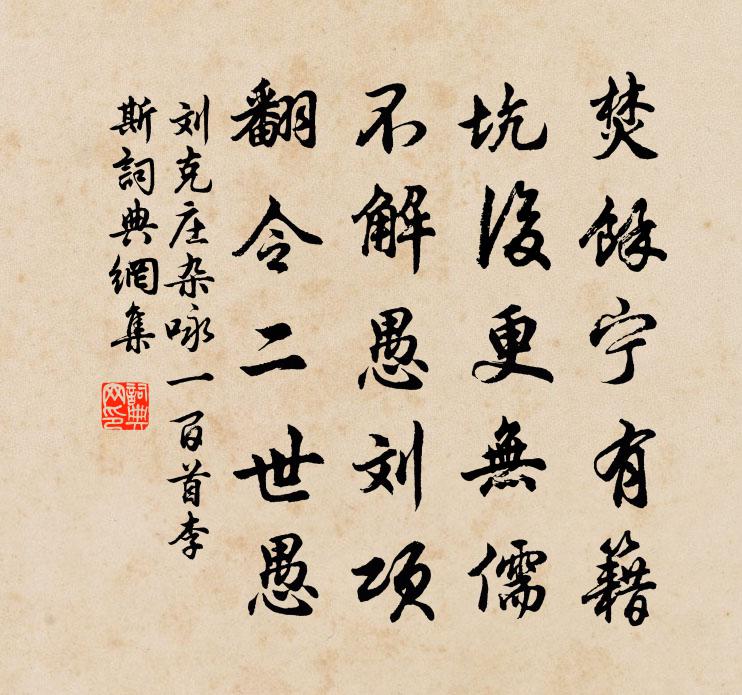 焚餘宁有籍
坑後更無儒
不解愚刘项
翻令二世愚
刘克庄杂咏一百首李
斯詞典網集
詞典網印